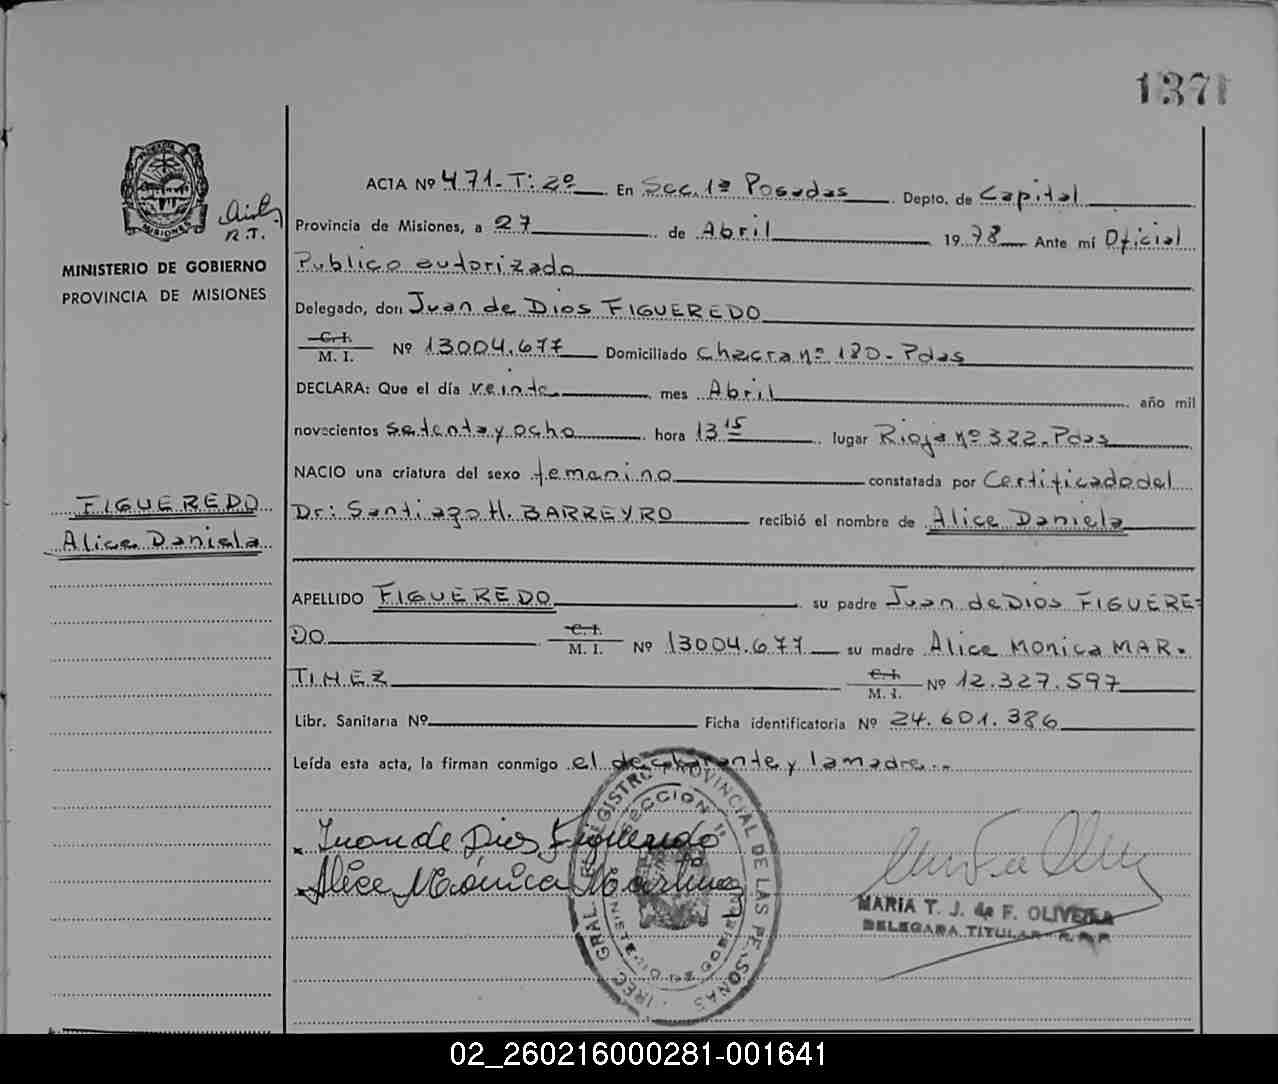 1371
MISIONES
R.T.
MINISTERIO DE GOBIERNO
PROVINCIA DE MISIONES
FIGUEREDO
Alice Daniela
ACTA Nº 471-T: 2º En Sec. 1ª Posadas Depto. de Capital
Provincia de Misiones, a 27 de Abril 1978 Ante mí Oficial
Publico autorizado
Delegado, don Juan de Dios FIGUEREDO
C. I.
M. I. Nº 13004.677 Domiciliado Chacra nº 180-Pdas
DECLARA: Que el día veinte mes Abril año mil
novecientos setenta y ocho hora 13 15 lugar Rioja Nº 322-Pdas
NACIO una criatura del sexo femenino constatada por Certificado del
Dr: Santiago H. BARREYRO recibió el nombre de Alice Daniela
APELLIDO FIGUEREDO su padre Juan de Dios FIGUERE-
DO C. I. M. I. Nº 13004.677 su madre Alice Monica MAR-
TINEZ C. I. M. I. Nº 12.327.597
Libr. Sanitaria Nº Ficha identificatoria Nº 24.601.386
Leída esta acta, la firman conmigo el declarante y la madre..
Juan de Dios Figueredo
Alice Mónica Martinez
GRAL. REGISTRO PROVINCIAL DE LAS PERSONAS
SECCION 1ª
MARIA T. J. de F. OLIVEIRA
DELEGADA TITULAR R.P.P
02_260216000281-001641